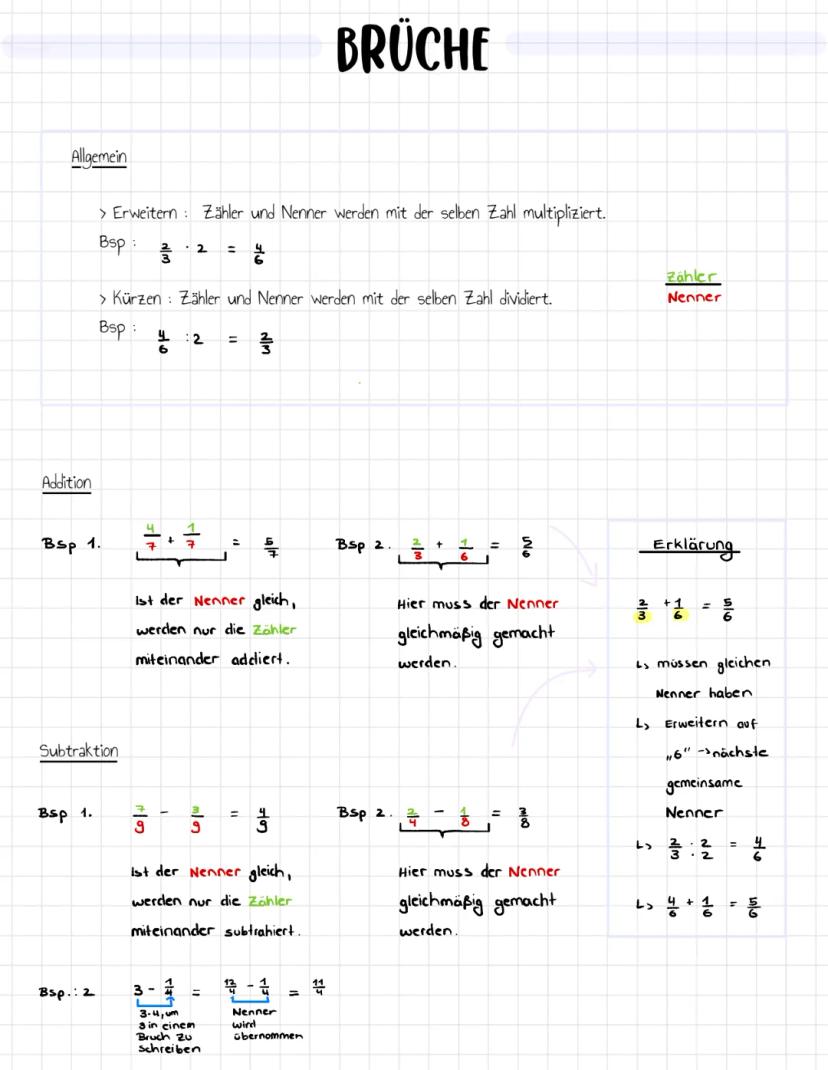 BRÜCHE
Allgemein
> Erweitern : Zähler und Nenner werden mit der selben Zahl multipliziert.
Bsp : 2/3 · 2 = 4/6
> Kürzen : Zähler und Nenner werden mit der selben Zahl dividiert.
Bsp : 4/6 : 2 = 2/3
Zähler
Nenner
Addition
Bsp 1. 4/7 + 1/7 = 5/7
Ist der Nenner gleich,
werden nur die Zähler
miteinander addiert.
Bsp 2. 2/3 + 1/6 = 5/6
Hier muss der Nenner
gleichmäßig gemacht
werden.
Erklärung
2/3 + 1/6 = 5/6
↳ müssen gleichen
Nenner haben
↳ Erweitern auf
„6“ → nächste
gemeinsame
Nenner
↳ 2/3 · 2/2 = 4/6
↳ 4/6 + 1/6 = 5/6
Subtraktion
Bsp 1. 7/9 - 3/9 = 4/9
Ist der Nenner gleich,
werden nur die Zähler
miteinander subtrahiert.
Bsp 2. 2/4 - 1/8 = 3/8
Hier muss der Nenner
gleichmäßig gemacht
werden.
Bsp.: 2 3 - 1/4 = 12/4 - 1/4 = 11/4
3·4, um
3 in einem
Bruch zu
schreiben
Nenner
wird
übernommen